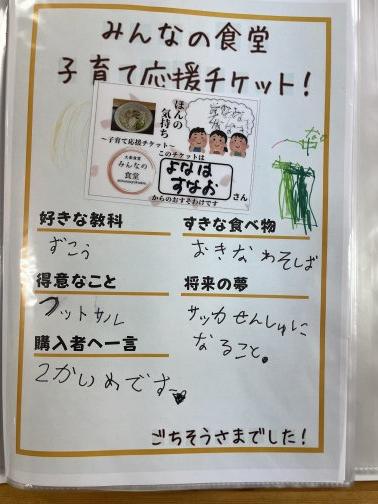 みんなの食堂
子育て応援チケット!
ほんの
気持ち
~子育て応援チケット~
みんなの
食堂
このチケットは
よなは
すなお
さん
からのおすそわけです
好きな教科
ずこう
すきな食べ物
おきなわそしば
得意なこと
フットサル
将来の夢
サッカせんしゅに
なること。
購入者へ一言
2かいめです
ごちそうさまでした!